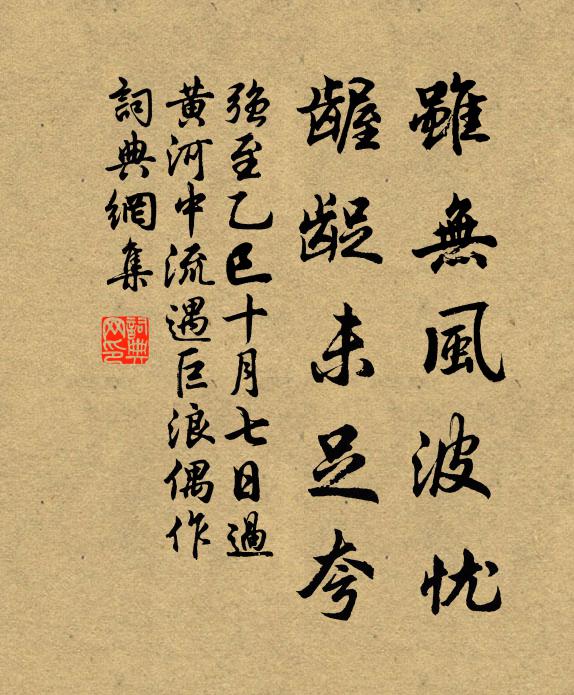 雖無風波忧
齷齪未足夸
強至乙巳十月七日過
黄河中流遇巨浪偶作
詞典網集
詞典网印